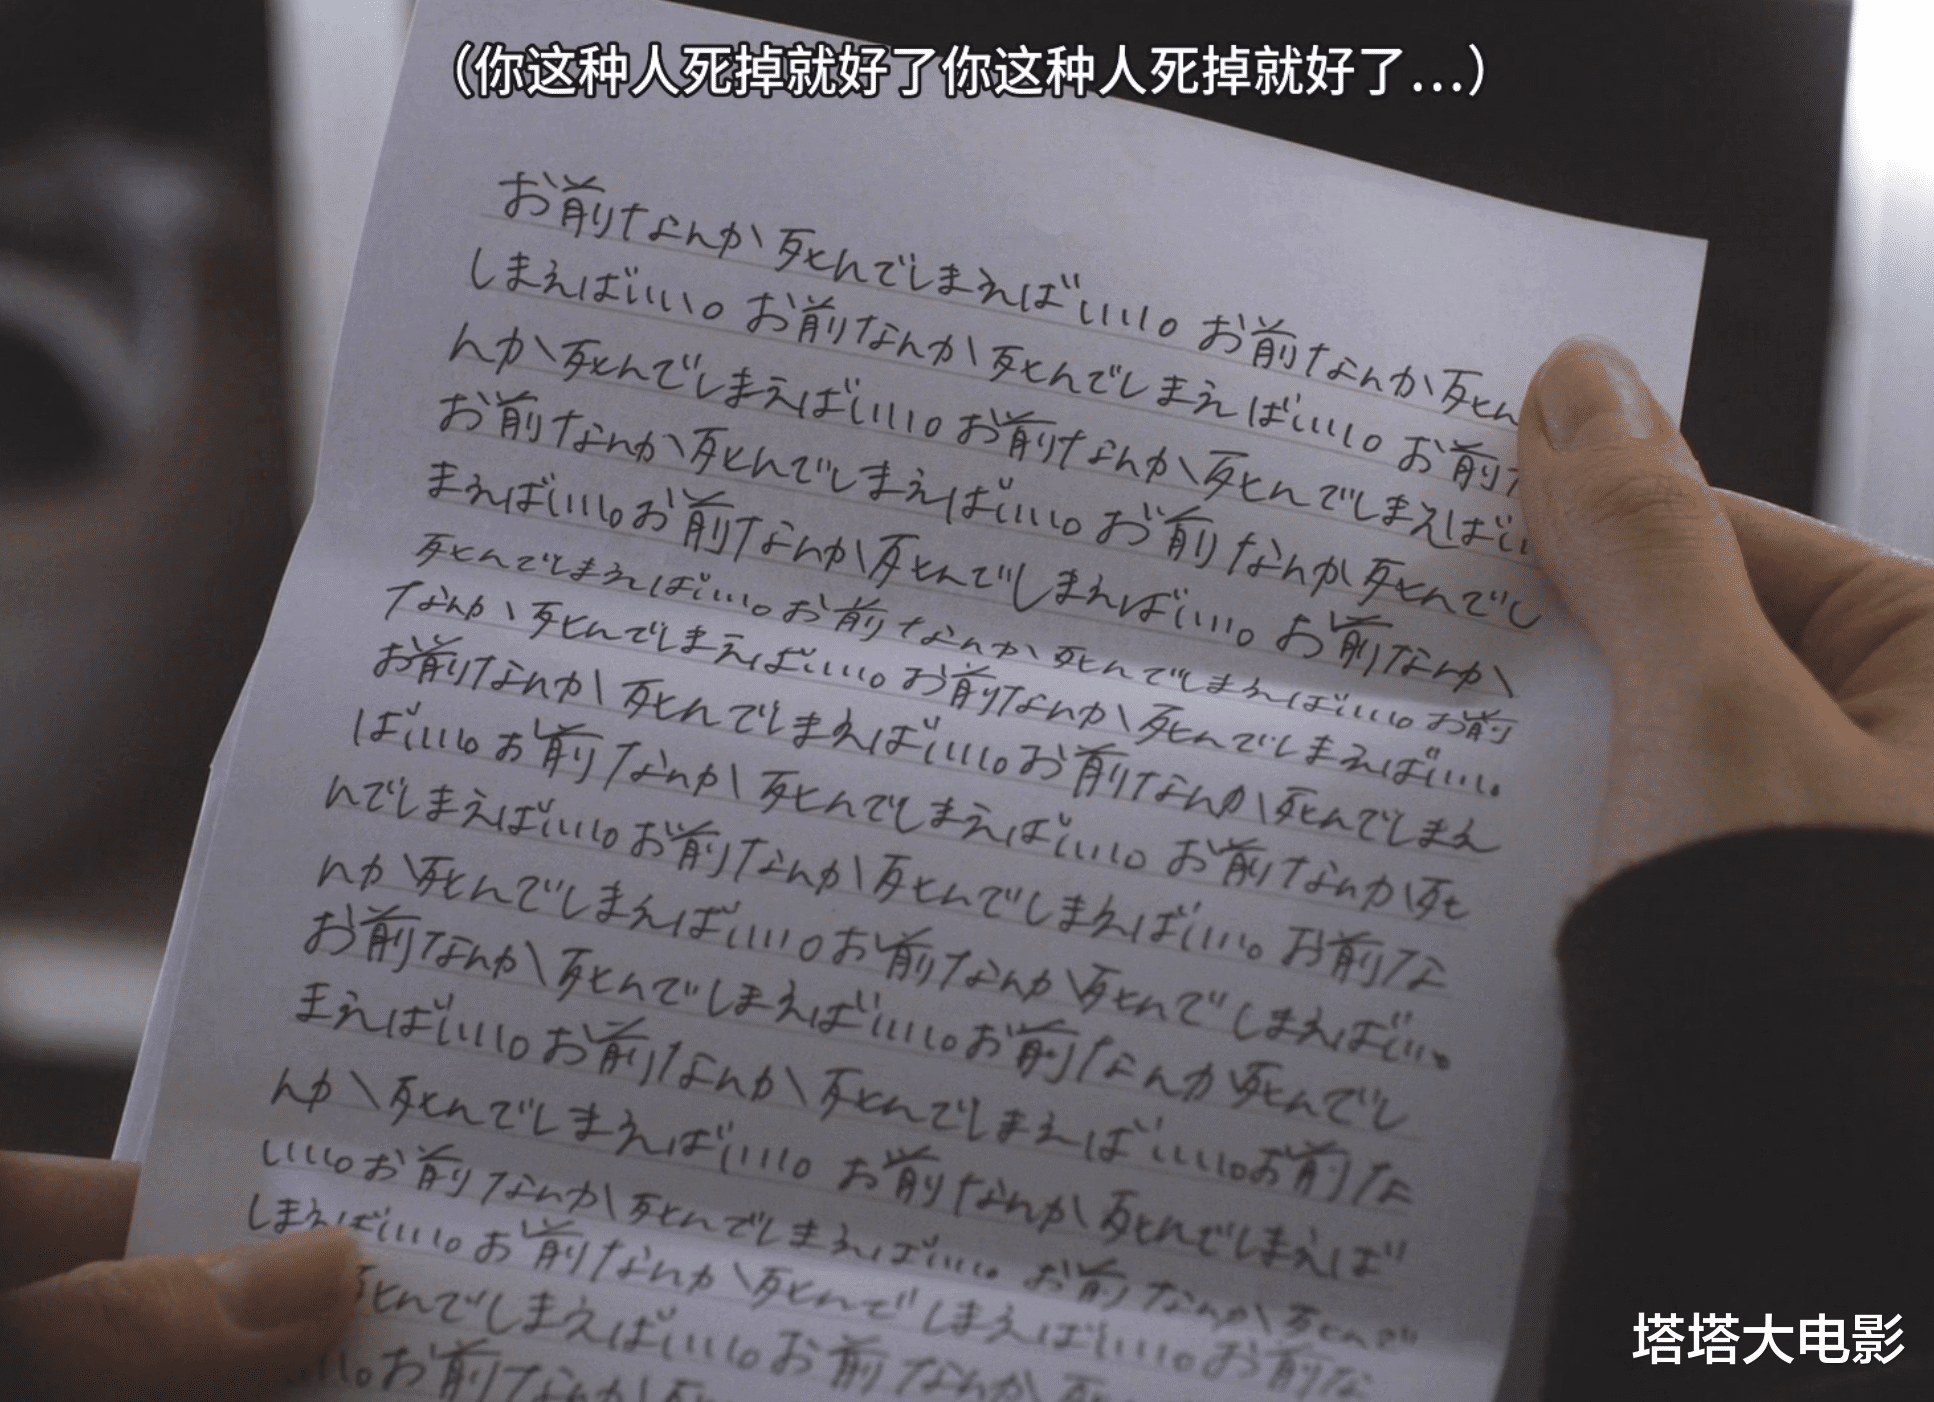 （你这种人死掉就好了你这种人死掉就好了…）
お前なんか死んでしまえばいい。お前なんか死ん
しまえばいい。お前なんか死んでしまえばいい。お前
んか死んでしまえばいい。お前なんか死んでしまえばい
お前なんか死んでしまえばいい。お前なんか死んでし
まえばいい。お前なんか死んでしまえばいい。お前なんか
死んでしまえばいい。お前なんか死んでしまえばいい。お前
なんか死んでしまえばいい。お前なんか死んでしまえばいい。
お前なんか死んでしまえばいい。お前なんか死んでしまえ
ばいい。お前なんか死んでしまえばいい。お前なんか死
んでしまえばいい。お前なんか死んでしまえばいい。お前な
んか死んでしまえばいい。お前なんか死んでしまえばいい。
お前なんか死んでしまえばいい。お前なんか死んでし
まえばいい。お前なんか死んでしまえばいい。お前な
んか死んでしまえばいい。お前なんか死んでしまえば
いい。お前なんか死んでしまえばいい。お前なんか死んで
しまえばいい。お前なんか死んでしまえばいい。お前な
んでしまえばいい。お前なんか
い。お前なんか
塔塔大电影